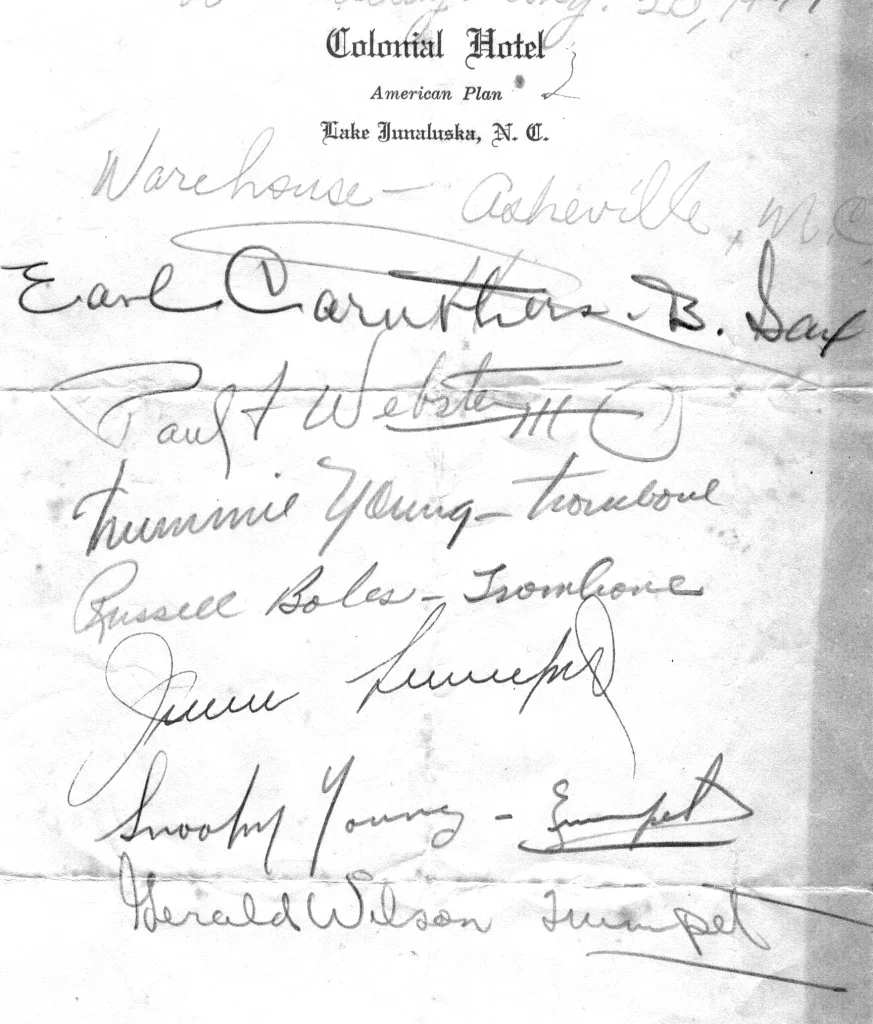 Aug. 20, 19
Colonial Hotel
American Plan
Lake Junaluska, N. C.
Warehouse - Asheville, N.C.
Earl Caruthers - B. Sax
Paul F Webster III
Trummie Young - trombone
Russell Boles - Trombone
Snooky Young - Trumpet
Gerald Wilson Trumpet